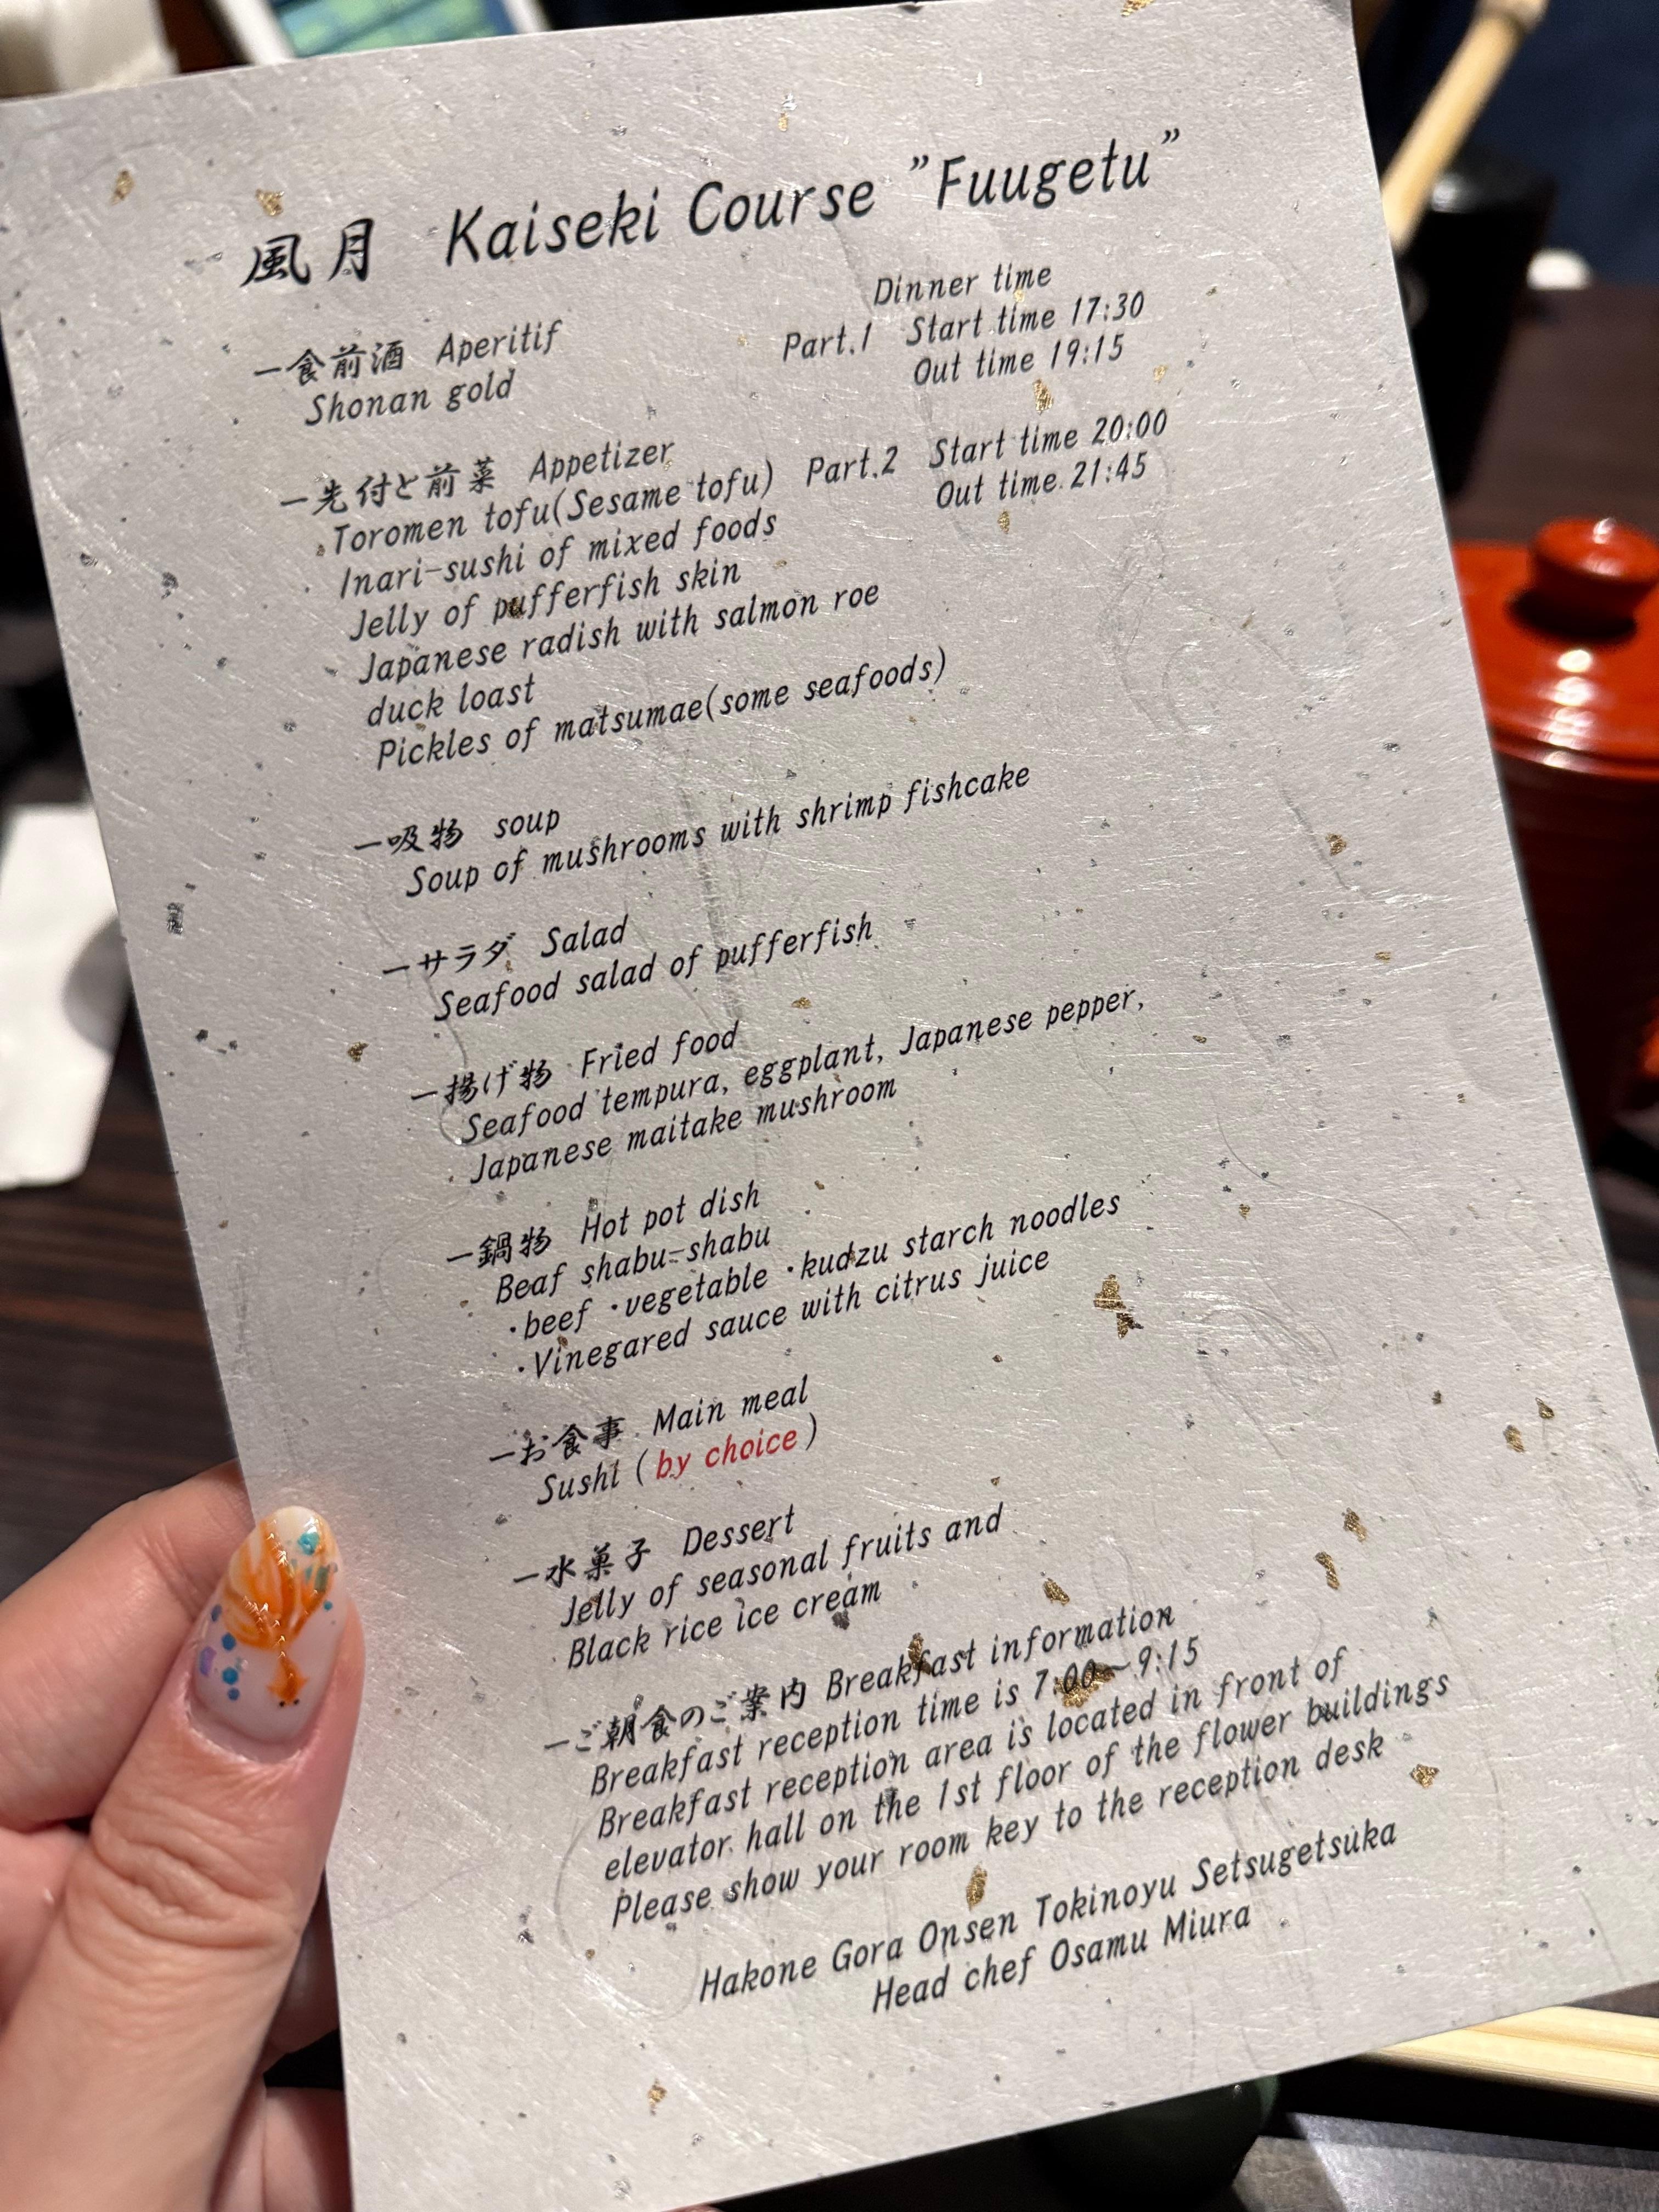 風月 Kaiseki Course "Fuugetu"
Dinner time
Part.1 Start time 17:30
Out time 19:15
Part.2 Start time 20:00
Out time 21:45
一食前酒 Aperitif
Shonan gold
一先付と前菜 Appetizer
Toromen tofu(Sesame tofu)
Inari-sushi of mixed foods
Jelly of pufferfish skin
Japanese radish with salmon roe
duck loast
Pickles of matsumae(some seafoods)
一吸物 soup
Soup of mushrooms with shrimp fishcake
一サラダ Salad
Seafood salad of pufferfish
一揚げ物 Fried food
Seafood tempura, eggplant, Japanese pepper,
Japanese maitake mushroom
一鍋物 Hot pot dish
Beaf shabu-shabu
・beef ・vegetable ・kudzu starch noodles
・Vinegared sauce with citrus juice
一お食事 Main meal
Sushi (by choice)
一水菓子 Dessert
Jelly of seasonal fruits and
Black rice ice cream
一ご朝食のご案内 Breakfast information
Breakfast reception time is 7:00～9:15
Breakfast reception area is located in front of
elevator hall on the 1st floor of the flower buildings
Please show your room key to the reception desk
Hakone Gora Onsen Tokinoyu Setsugetsuka
Head chef Osamu Miura